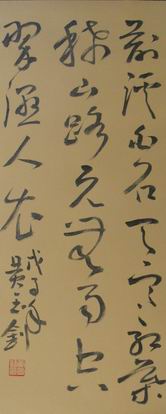 荆溪白石出天寒紅葉
稀山路元無雨空
翠濕人衣
戊子年